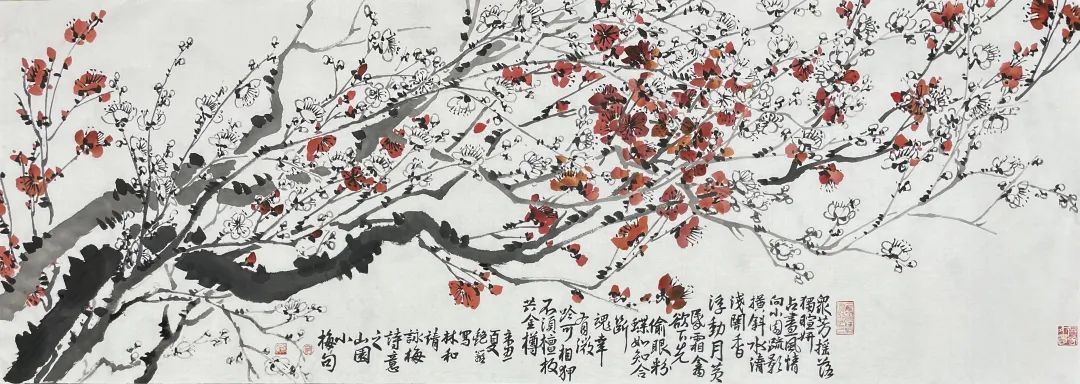 衆芳摇落
獨暄妍
占盡風情
向小園疏影
橫斜水清
淺闇香
浮動月黄
昏霜禽
欲下先
偷眼粉
蝶如知合
斷
魂幸
有微
吟可相狎
不須檀板
共金樽
辛丑
夏
寫
林和
靖
詠梅
詩意
之
山園
小
梅句